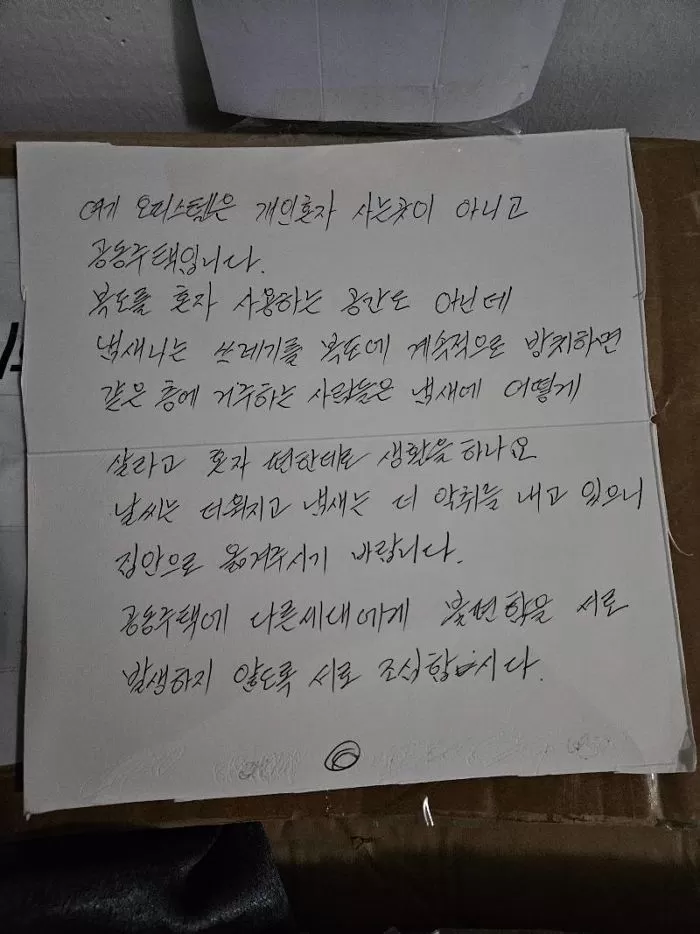 여기 오피스텔은 개인혼자 사는곳이 아니고
공동주택입니다.
복도를 혼자 사용하는 공간도 아닌데
냄새나는 쓰레기를 복도에 계속적으로 방치하면
같은 층에 거주하는 사람들은 냄새에 어떻게
살라고 혼자 편한데로 생활을하나요
날씨는 더워지고 냄새는 더 악취를 내고 있으니
집안으로 옮겨주시기 바랍니다.
공동주택에 다른세대에게 불편함을 서로
발생하지 않도록 서로 조심합시다.